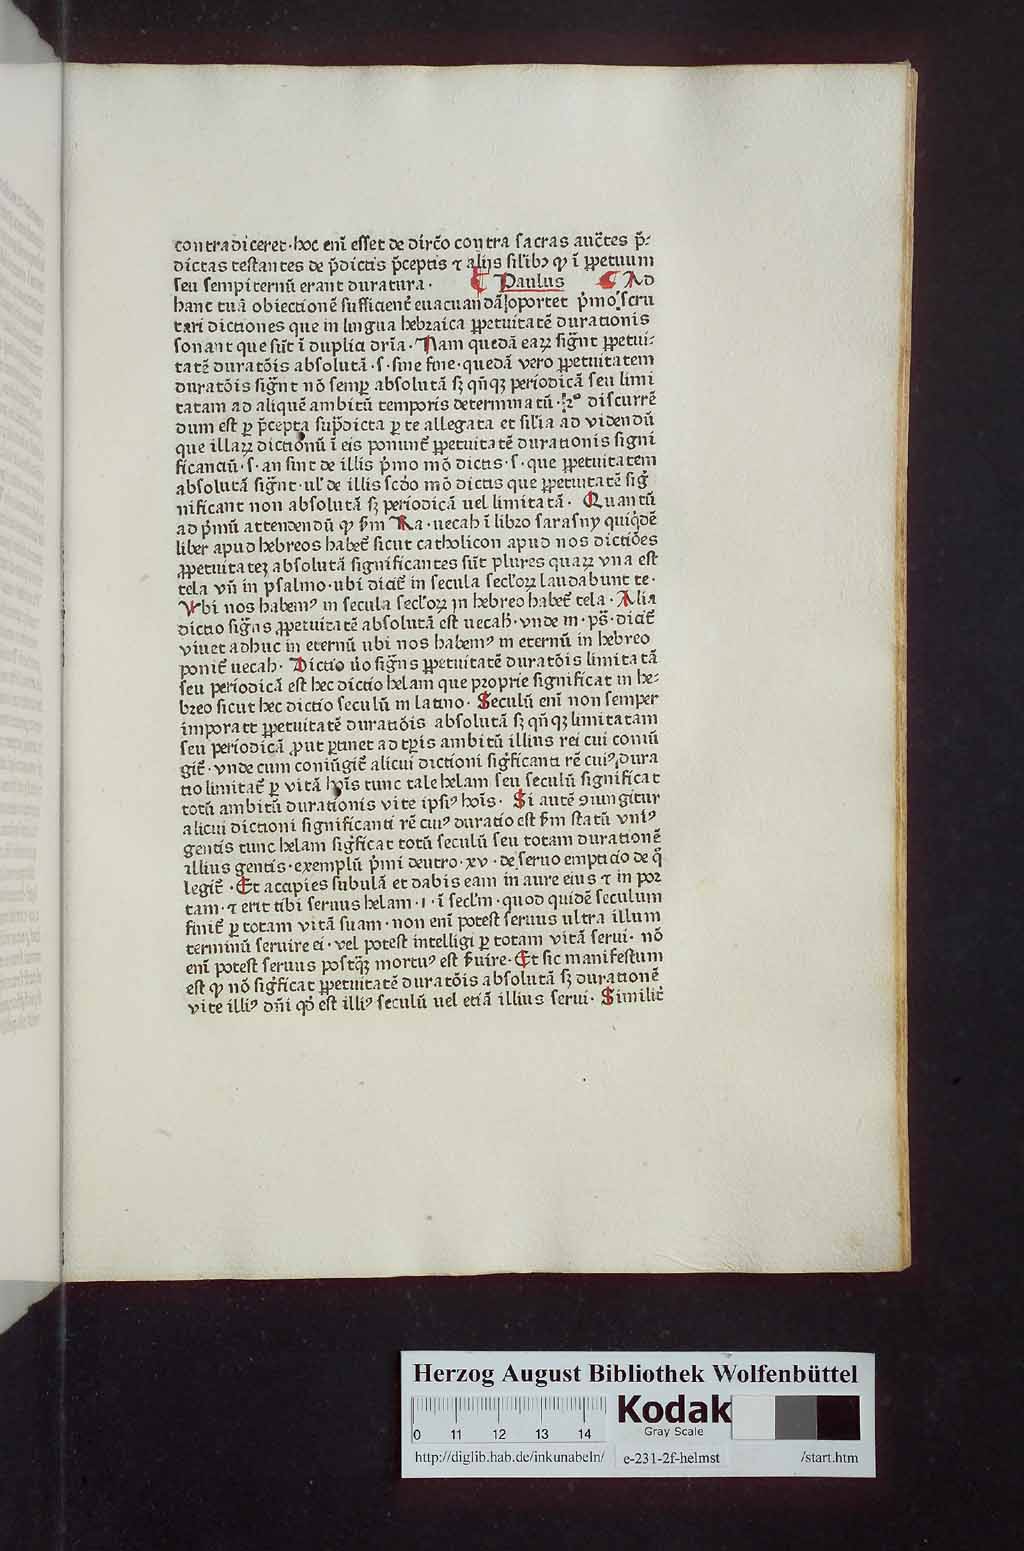 contradiceret·hoc enī esset de dirc̄o contra sacras auctes p̄-
dictas testantes de p̄dictis p̄ceptis ⁊ alijs silibꝫ ꝙ ī ꝑpetuum
seu sempiternū erant duratura· ¶ Paulus ¶ Ad
hanc tuā obiectionē sufficient̄ euacuandā oportet p̄mo scru
tari dictiones que in lingua hebraica ꝑpetuitatē durationis
sonant que sūt ī duplici dr̄ia· Nam quedā eaꝝ sigt̄ ꝑpetui-
tatē duratōis absolutā·s·sine fine·quedā vero ꝑpetuitatem
duratōis sigt̄ nō semꝑ absolutā sꝫ qn̄qꝫ periodicā seu limi
tatam ad aliquē ambitū temporis determinatū·2° discurrē
dum est ꝑ p̄cepta sup̄dicta ꝑ te allegata et silia ad videndū
que illaꝝ dictionū ī eis ponunt̄ ꝑpetuitatē durationis signi
ficantiū·s·an sint de illis p̄mo mō dictis·s·que ꝑpetuitatem
absolutā sigt̄·ul̄ de illis scd̄o mō dictis que ꝑpetuitatē siḡ
nificant non absolutā sꝫ periodicā uel limitatā· Quantū
ad p̄mū attendendū ꝙ s̄m Ra·uecah ī libro sarasny quiq̄dē
liber apud hebreos habet̄ sicut catholicon apud nos dictiōes
ꝓpetuitateꝫ absolutā significantes sūt plures quaꝝ vna est
tela vn̄ in psalmo·ubi dicit̄ in secula secl̄oꝝ laudabunt te·
Vbi nos habemꝰ in secula secl̄oꝝ in hebreo habet̄ tela· Alia
dictio sigñs ꝓpetuitatē absolutā est uecah·vnde in·ps̄·dicit̄
viuet adhuc in eternū ubi nos habemꝰ in eternū in hebreo
ponit̄ uecah· Dictio ūo sigñs ꝑpetuitatē duratōis limitatā
seu periodicā est hec dictio helam que proprie significat in he-
breo sicut hec dictio seculū in latino· Seculū enī non semper
importat ꝑpetuitatē duratiōis absolutā sꝫ qn̄qꝫ limitatam
seu periodicā ꝓut ꝑtinet ad tp̄is ambitū illius rei cui coniū
git̄·vnde cum coniūgit̄ alicui dictioni siḡficanti rē cuiꝰ dura
tio limitat̄ ꝑ vitā hoīs tunc tale helam seu seculū significat
totū ambitū durationis vite ipsiꝰ hoīs· Si autē ꝯiungitur
alicui dictioni significanti rē cuiꝰ duratio est s̄m statū vniꝰ
gentis tunc helam siḡficat totū seculū seu totam durationē
illius gentis·exemplū p̄mi deutro·xv·de seruo empticio de q̄
legit̄·Et accipies subulā et dabis eam in aure eius ⁊ in por
tam·⁊ erit tibi seruus helam·i·ī secl̄m·quod quidē seculum
finit̄ ꝑ totam vitā suam·non enī potest seruus ultra illum
terminū seruire ei·vel potest intelligi ꝑ totam vitā serui·nō
enī potest seruus postq̄ꝫ mortuꝰ est s̄uire·Et sic manifestum
est ꝙ nō siḡficat ꝑpetuitatē duratōis absolutā sꝫ durationē
vite illiꝰ dn̄i qd̄ est illiꝰ seculū uel etiā illius serui· Similit̄
Herzog August Bibliothek Wolfenbüttel
0 11 12 13 14
Kodak
Gray Scale
http://diglib.hab.de/inkunabeln/ e-231-2f-helmst /start.htm